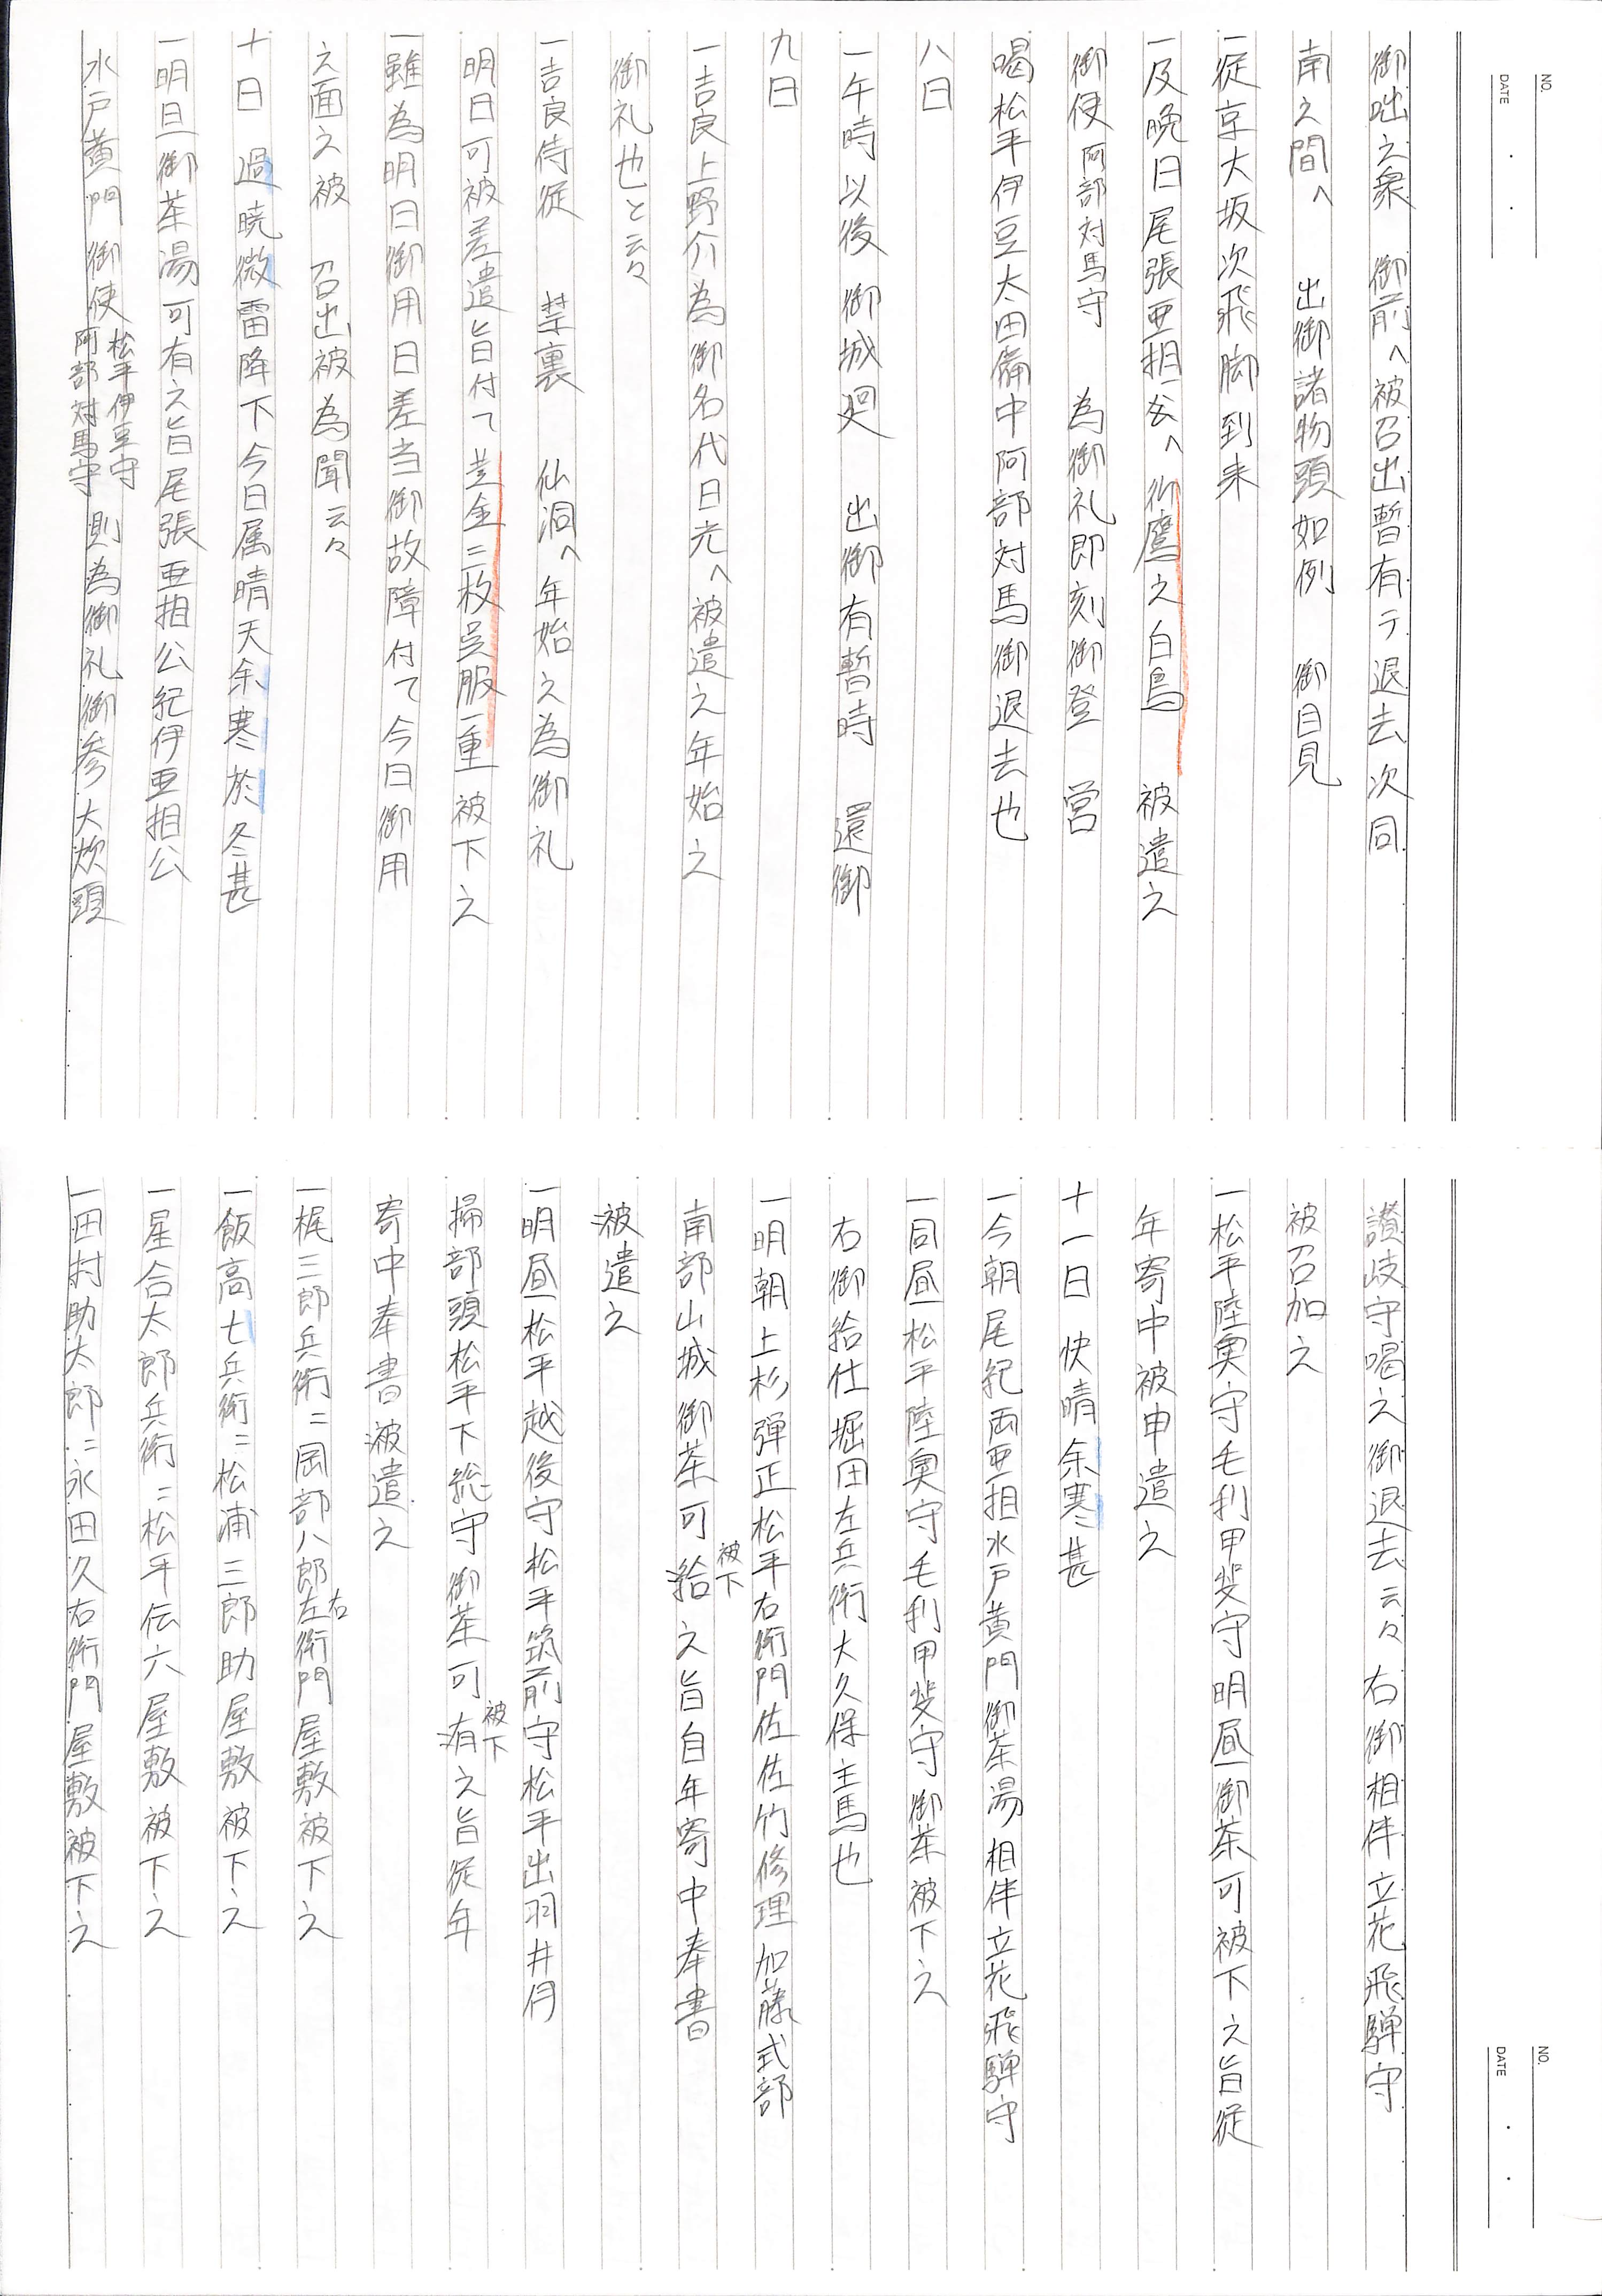 NO.
DATE
御咄之衆　御前へ被召出暫有テ退去次同
南之間へ　出御諸物頭如例　御目見
一従京大坂次飛脚到来
一及晩日尾張亜相公へ御鷹之白鳥　被遣之
御使阿部対馬守　為御礼即刻御登　営
喝松平伊豆太田備中阿部対馬御退去也
八日
一午時以後御城廻　出御有暫時　還御
九日
一吉良上野介為御名代日光へ被遣之年始之
御礼也と云々
一吉良侍従　禁裏　仙洞へ年始之為御礼
明日可被差遣旨付て黄金二枚呉服一重被下之
一雖為明日御用日差当御故障付て今日御用
之面之被　召出被為聞云々
十日　過暁微雷降下今日属晴天余寒於冬甚
一明旦御茶湯可有之旨尾張亜相公紀伊亜相公
水戸黄門御使松平伊豆守阿部対馬守則為御礼御参大炊頭
NO.
DATE
讃岐守喝之御退去云々右御相伴立花飛騨守
被召加之
一松平陸奥守毛利甲斐守明昼御茶可被下之旨従
年寄中被申遣之
十一日快晴余寒甚
一今朝尾紀両亜相水戸黄門御茶湯相伴立花飛騨守
一同昼松平陸奥守毛利甲斐守御茶被下之
右御給仕堀田左兵衛大久保主馬也
一明朝上杉弾正松平右衛門佐佐竹修理加藤式部
南部山城御茶可給被下之旨自年寄中奉書
被遣之
一明昼松平越後守松平筑前守松平出羽井伊
掃部頭松平下総守御茶可有被下之旨従年
寄中奉書被遣之
一梶三郎兵衛ニ岡部八郎左右衛門屋敷被下之
一飯高七兵衛ニ松浦三郎助屋敷被下之
一星合太郎兵衛ニ松平伝六屋敷被下之
一田村助太郎ニ永田久右衛門屋敷被下之